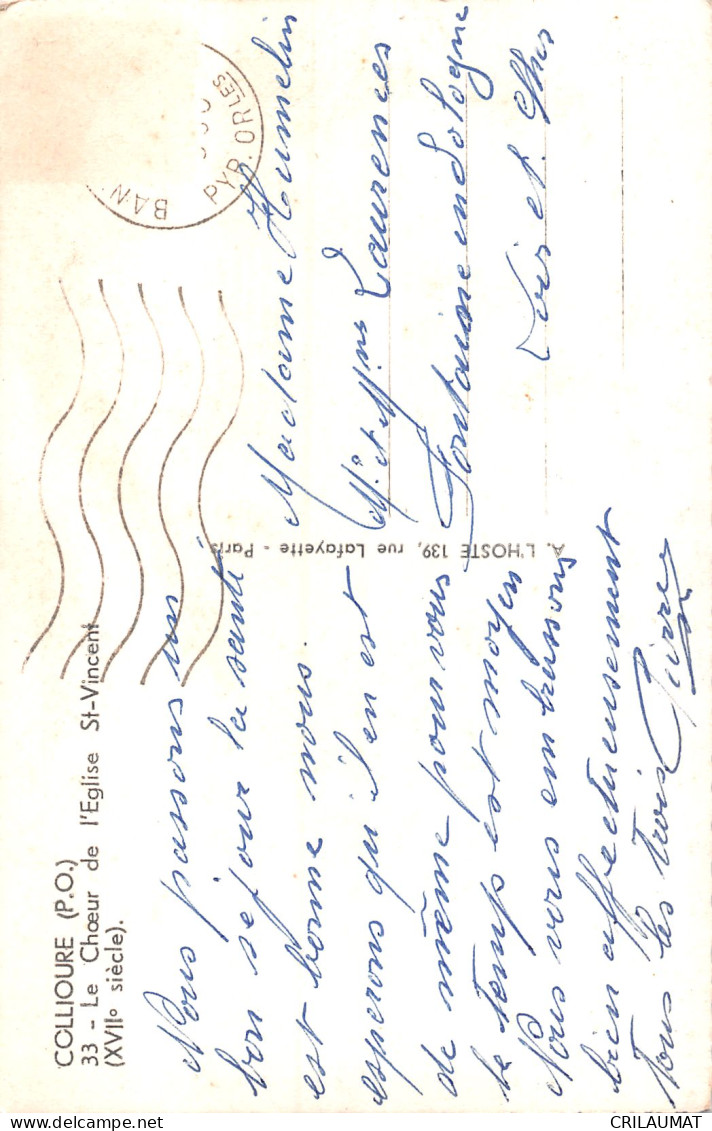 COLLIOURE (P.O.)
33 - Le Chœur de l'Eglise St-Vincent
(XVIIº siècle).
Nous passons un
bon sejour la santé
est bonne nous
esperons qu'il en est
de même pour vous
le temps est moyen
Nous vous embrassons
bien affectueusement
Tous les trois Pierre
A. L'HOSTE 139, rue Lafayette - Paris
BAN
PYR. ORLES
Madame Hamelin
Mr et Mme Laurences
Fontaine en Sologne
Loir et Cher
CRILAUMAT